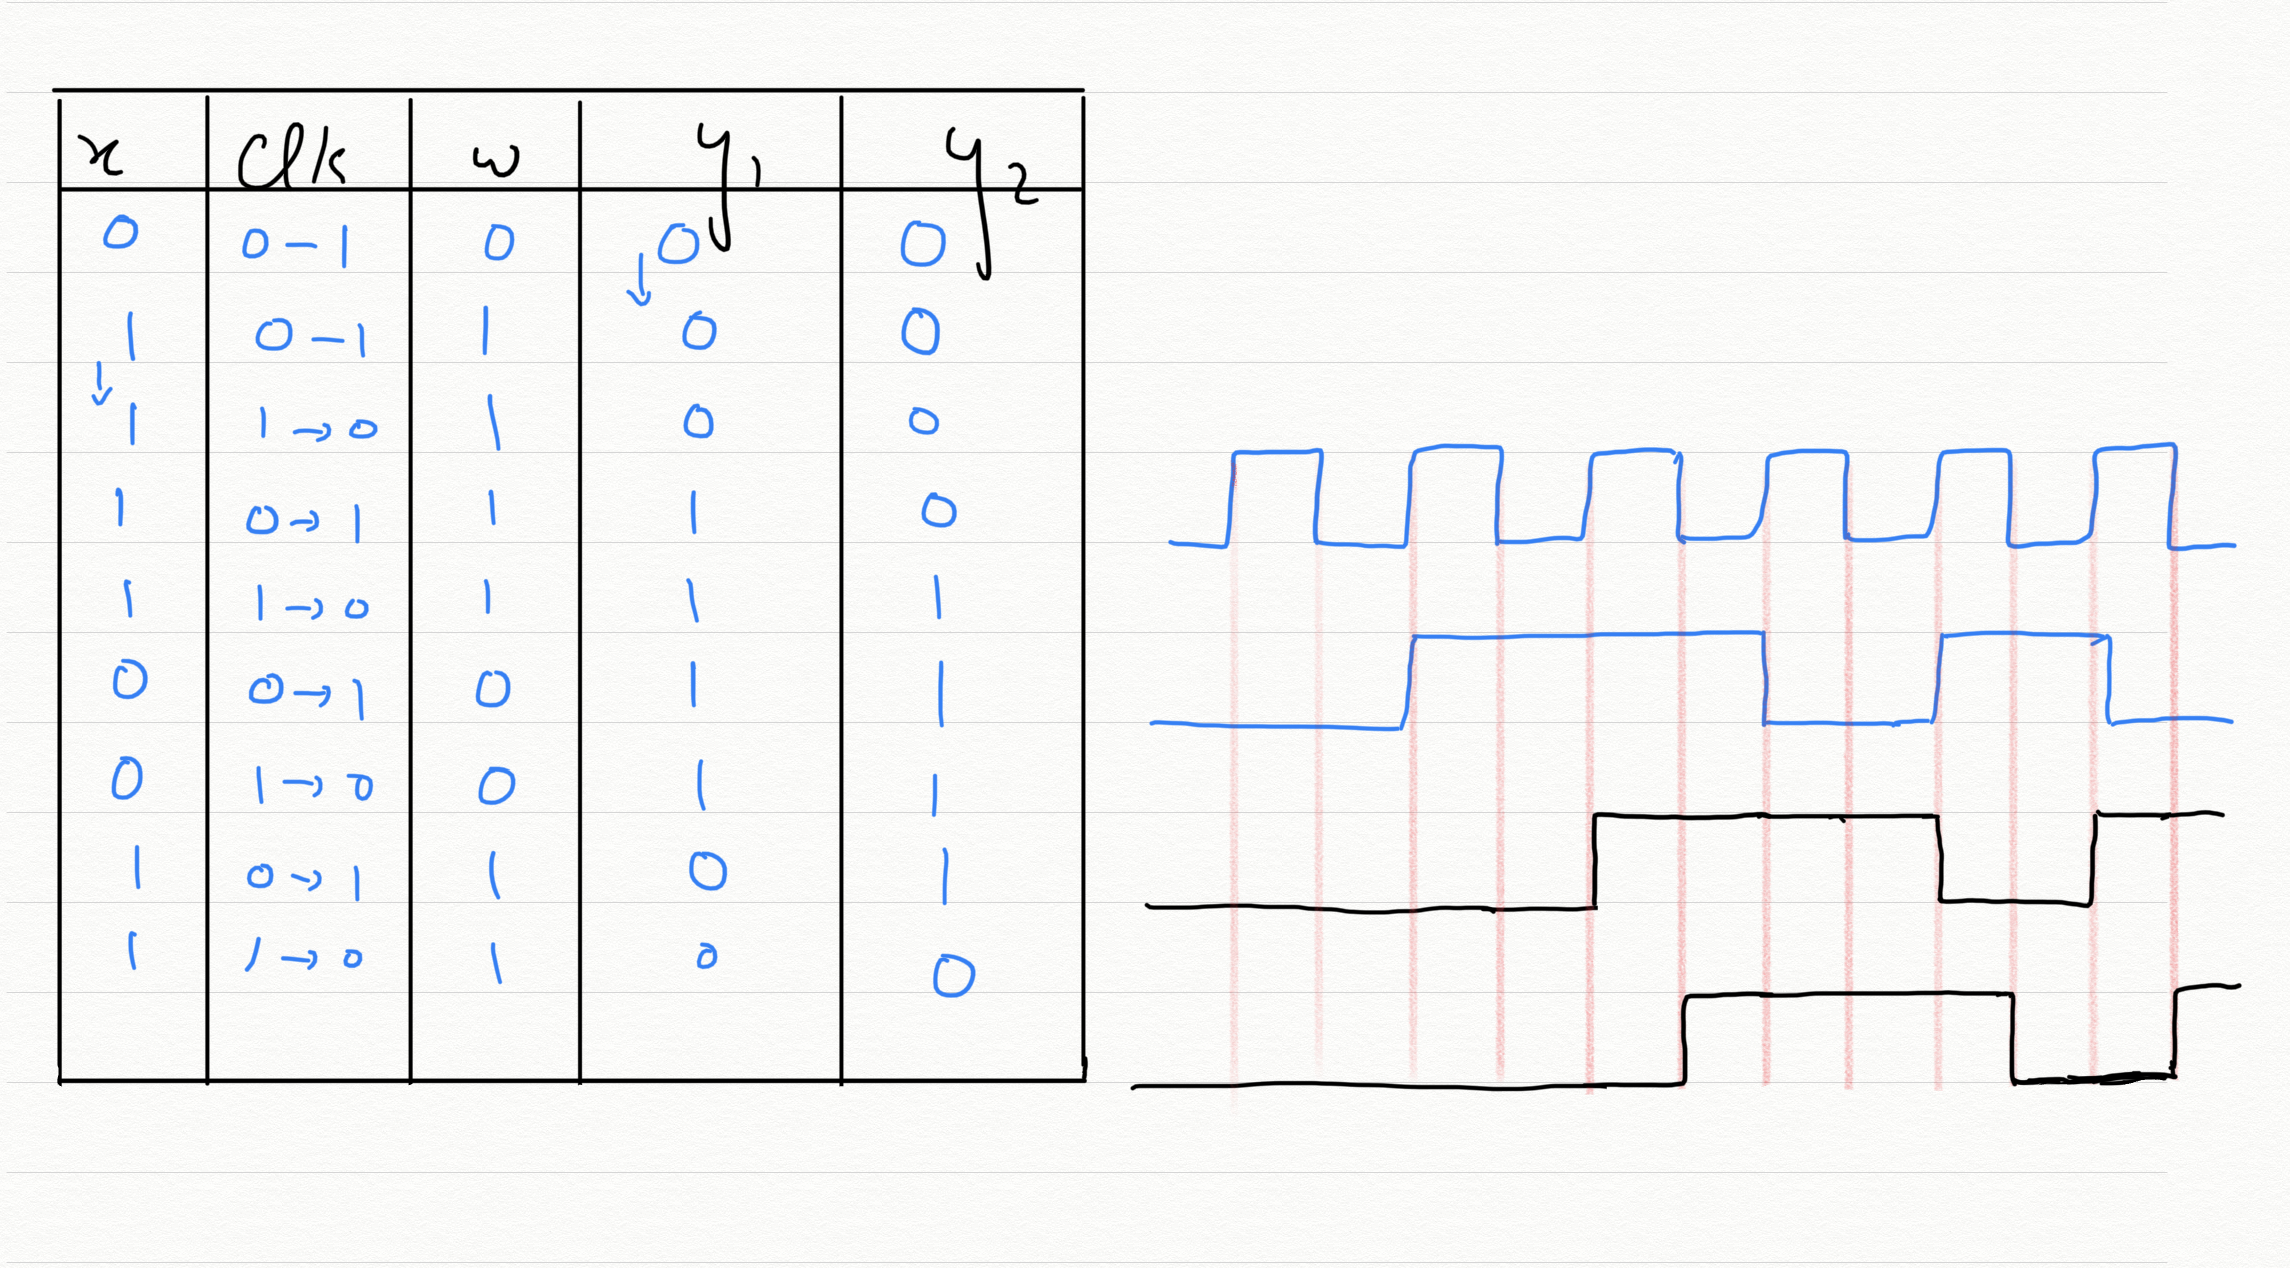 x Clk w y1 y2
0 0-1 0 0 0
↓
1 0-1 1 0 0
↓
1 1→0 1 0 0
1 0→1 1 1 0
1 1→0 1 1 1
0 0→1 0 1 1
0 1→0 0 1 1
1 0→1 1 0 1
1 1→0 1 0 0